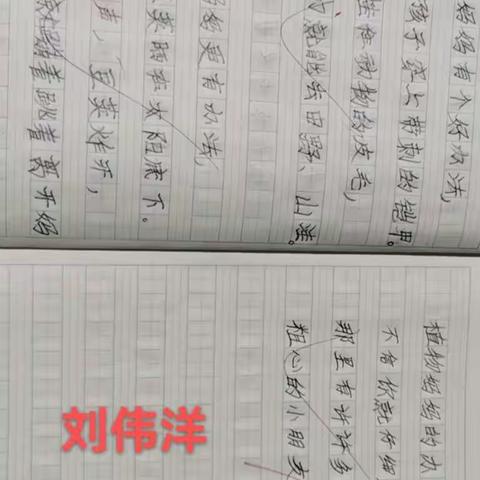 妈妈有个好办法,
孩子穿上带刺的铠甲。
挂住动物的皮毛,
就能去田野、山洼。
妈更有办法,
荚晒在太阳底下。
声,豆荚炸开,
蹦着跳着离开妈
植物妈妈的办
不信你就仔细
那里有许许多
粗心的小朋友
刘伟洋